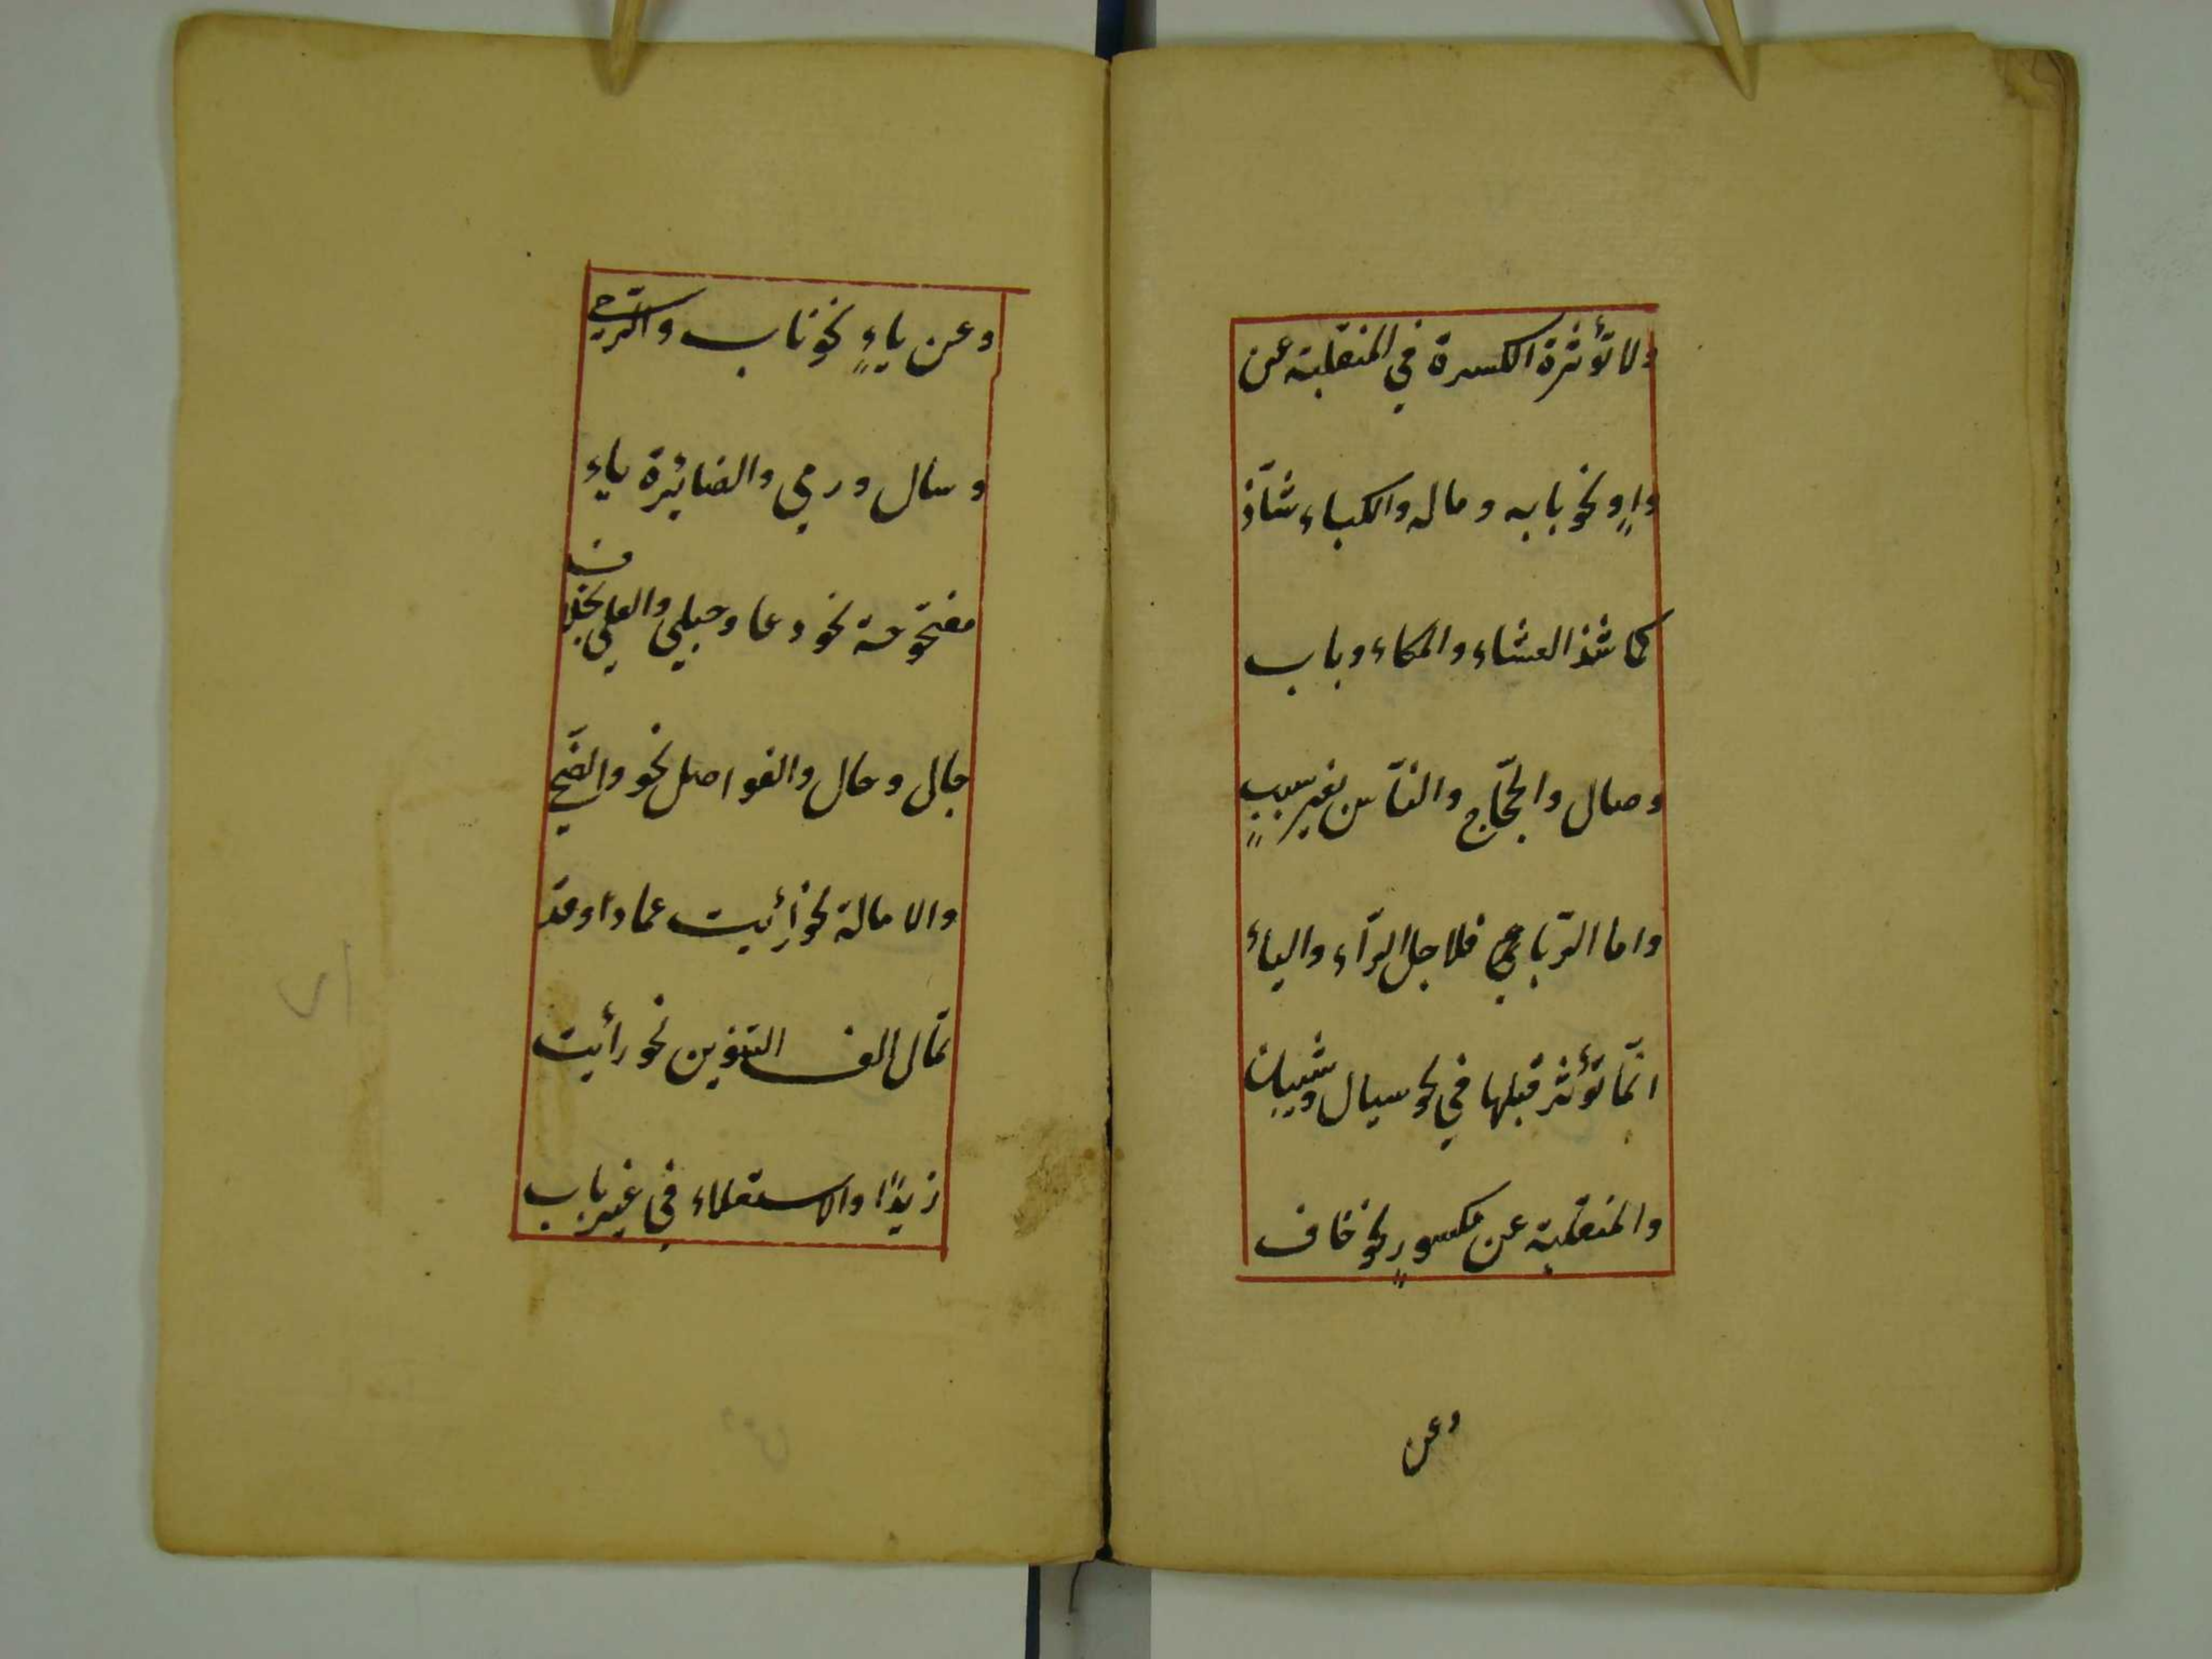 ولا تؤثرة الكسرة في المنقلبة عن
واوٍ نحو بابه وماله والكباء شاذّ
كما شذ العشاء والمكاء وباب
وصال والحجّاج والنّاس بغير سببٍ
واما الرّبا فلاجل الرّآء والياء
انّما تؤثر قبلها في نحو سيال وشيبان
والمنقلبة عن مكسورٍ نحو خاف
وعن
وعن ياءٍ نحو ناب والرحي
وسال ورمي والصائرة ياء
مفتوحة نحو دعا وحبلي والعلي بخلاف
جال وحال والفواصل نحو والضّحي
والامالة نحو رأيت عمادا وقد
تمال الف التنوين نحو رأيت
زيدًا والاستعلاء في غير باب